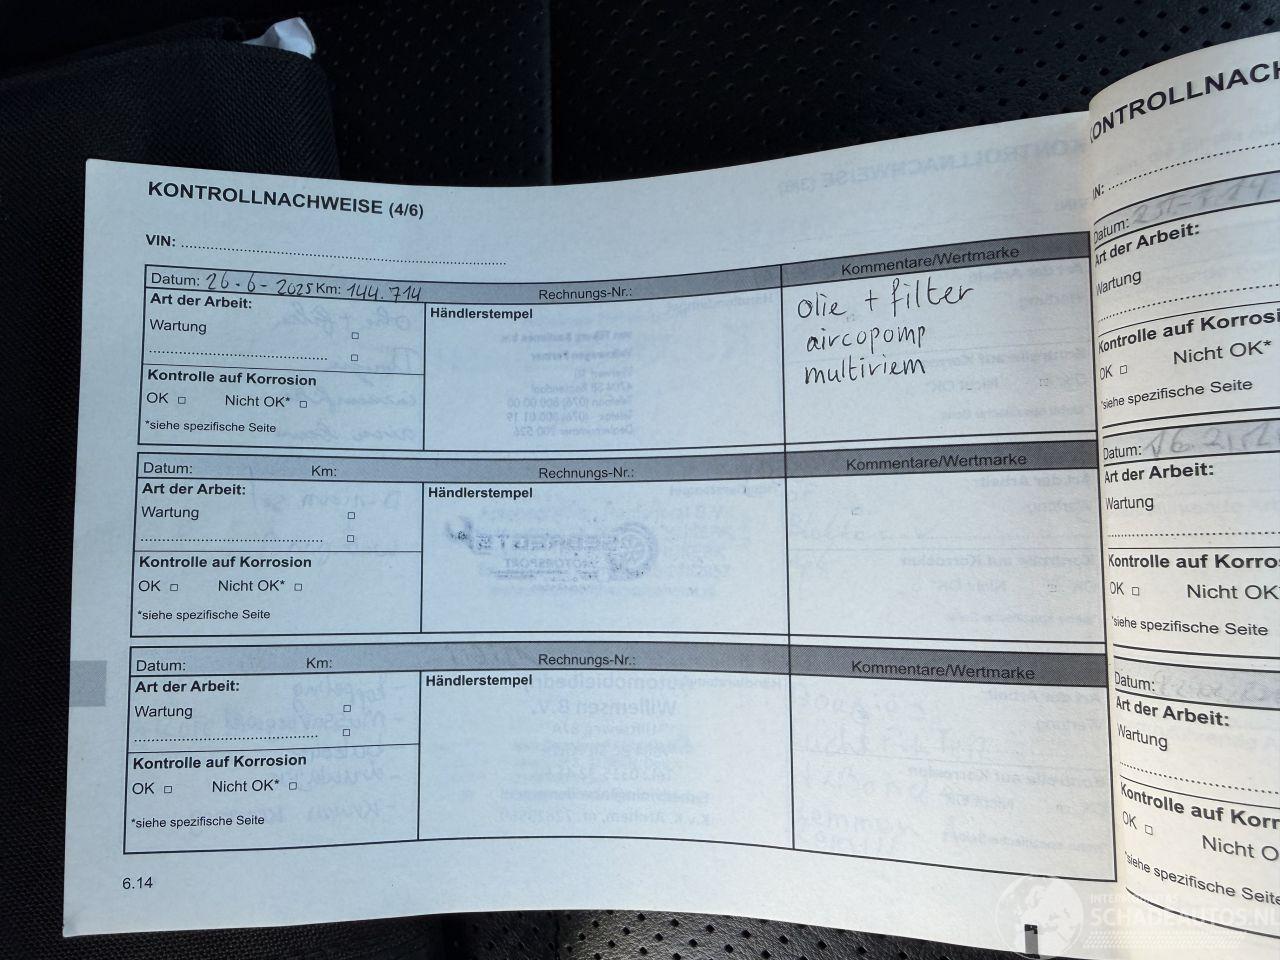 KONTROLLNACHWEISE (4/6)
VIN:
Datum: 26-6-2025 Km: 144.714 Rechnungs-Nr.: Kommentare/Wertmarke
Art der Arbeit:
Wartung
Kontrolle auf Korrosion
OK Nicht OK*
*siehe spezifische Seite
Händlerstempel
olie + filter
aircopomp
multiriem
Datum: Km: Rechnungs-Nr.: Kommentare/Wertmarke
Art der Arbeit:
Wartung
Kontrolle auf Korrosion
OK Nicht OK*
*siehe spezifische Seite
Händlerstempel
Datum: Km: Rechnungs-Nr.: Kommentare/Wertmarke
Art der Arbeit:
Wartung
Kontrolle auf Korrosion
OK Nicht OK*
*siehe spezifische Seite
Händlerstempel
6.14
KONTROLLNACH
IN:
Datum:
Art der Arbeit:
Wartung
Kontrolle auf Korrosi
OK Nicht OK*
*siehe spezifische Seite
Datum:
Art der Arbeit:
Wartung
Kontrolle auf Korro
OK Nicht OK
*siehe spezifische Seite
Datum:
Art der Arbeit:
Wartung
Kontrolle auf Korr
OK Nicht O
*siehe spezifische Seite
SCHADEAUTOS.NL